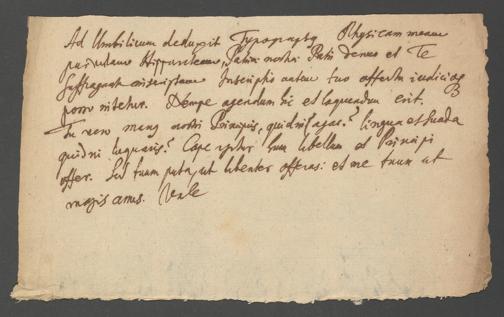 Ad Umbilicum deduxit Typographg Physicam meam
Hippocraticam, Patini nostri Pati denuo et Te
suffragante inscriptam Inscriptio autem tuo offertur iudicio
porro nitetur. Nempe agendum hic et loquendum erit.
Tu vero mang nostri Principis, quidni agas? lingua et suada
quidni loquaris? Cape igitur hunc libellum et Principi
offer. Sed tuum puta, ut libenter offeras: et me tuum ut
magis ames. Vale